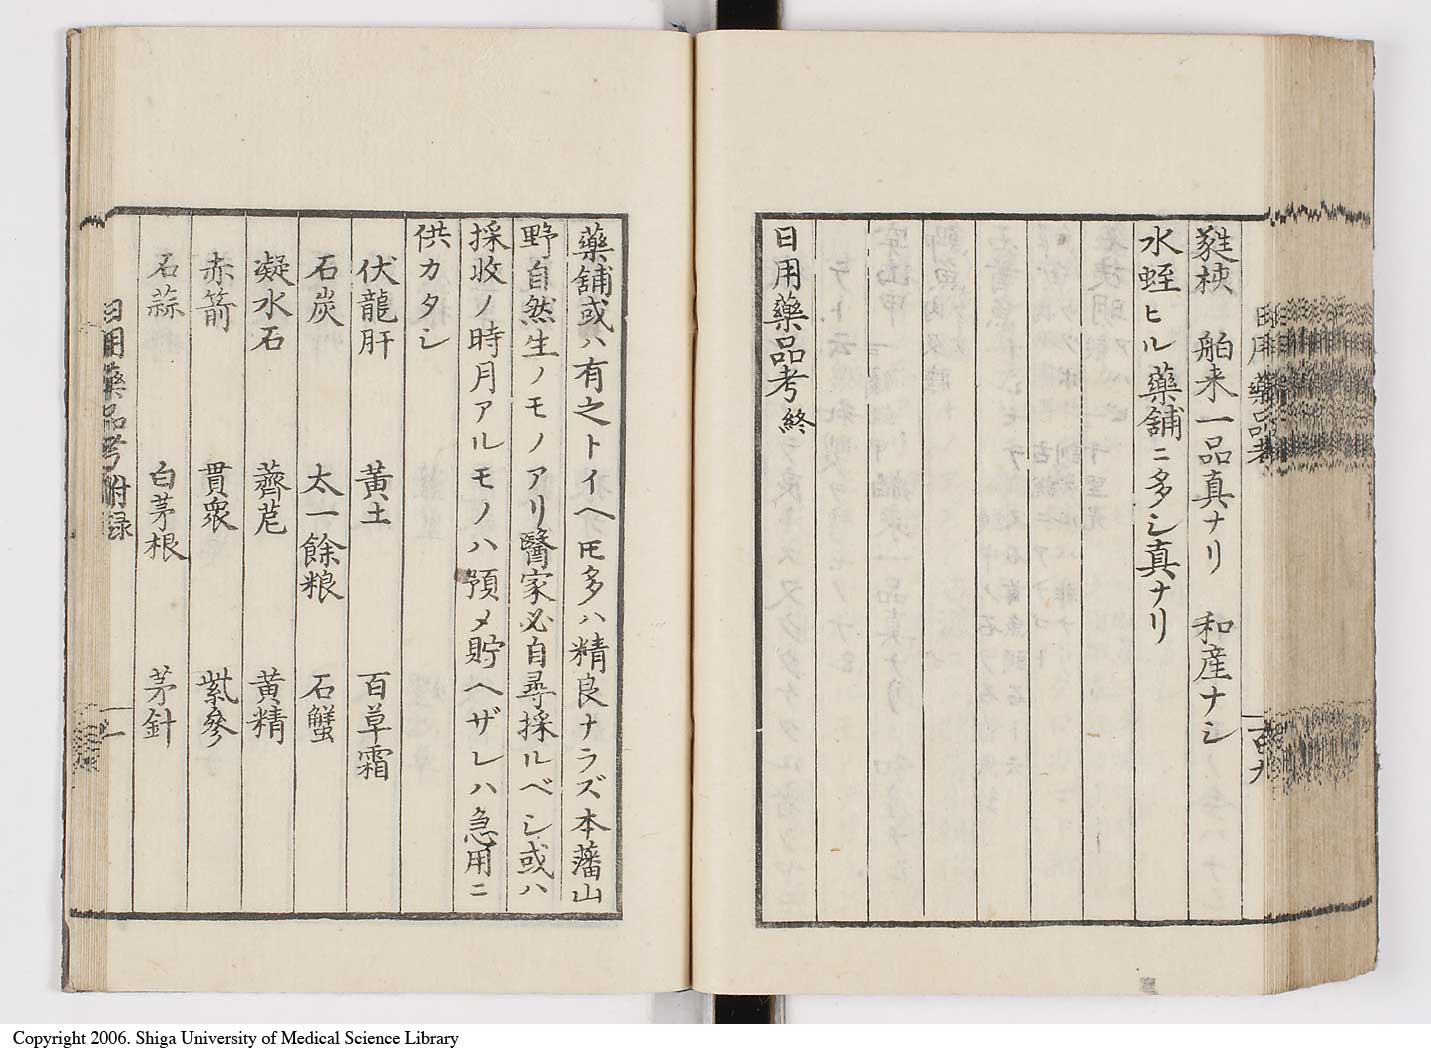 蕤核　舶来一品真ナリ　和産ナシ
水蛭ヒル藥舖ニ多シ真ナリ
日用藥品考終
日用藥品考
藥舖或ハ有之トイヘ𪜈多ハ精良ナラズ本藩山
野自然生ノモノアリ醫家必自尋採ルベシ或ハ
採收ノ時月アルモノハ預メ貯ヘザレハ急用ニ
供カタシ
伏龍肝　黄土　百草霜
石炭　太一餘粮　石蟹
凝水石　薺苨　黄精
赤箭　貫衆　紫參
石蒜　白茅根　茅針
日用藥品考附録
Copyright 2006. Shiga University of Medical Science Library